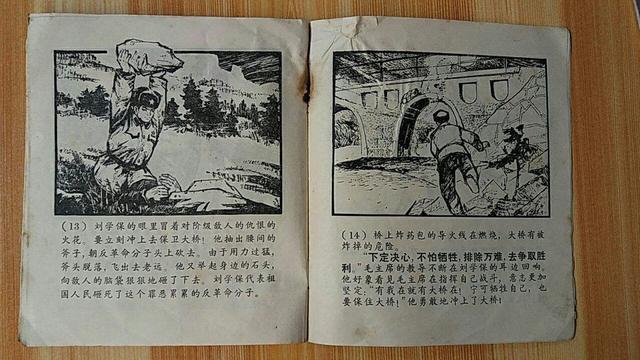 (13) 刘学保的眼里冒着对阶级敌人的仇恨的
火花，要立刻冲上去保卫大桥！他抽出腰间的
斧子，朝反革命分子头上砍去。由于用力过猛，
斧头脱落，飞出去老远。他又举起身边的石头，
向敌人的脑袋狠狠地砸了下去。刘学保代表祖
国人民砸死了这个罪恶累累的反革命分子。
(14) 桥上炸药包的导火线在燃烧，大桥有被
炸掉的危险。
“下定决心，不怕牺牲，排除万难，去争取胜
利。”毛主席的教导不断在刘学保的耳边回响，
他好象看见毛主席在指挥自己战斗，意志更加
坚定：“有我在就有大桥在！宁可牺牲自己，也
要保住大桥！”他勇敢地冲上了大桥！